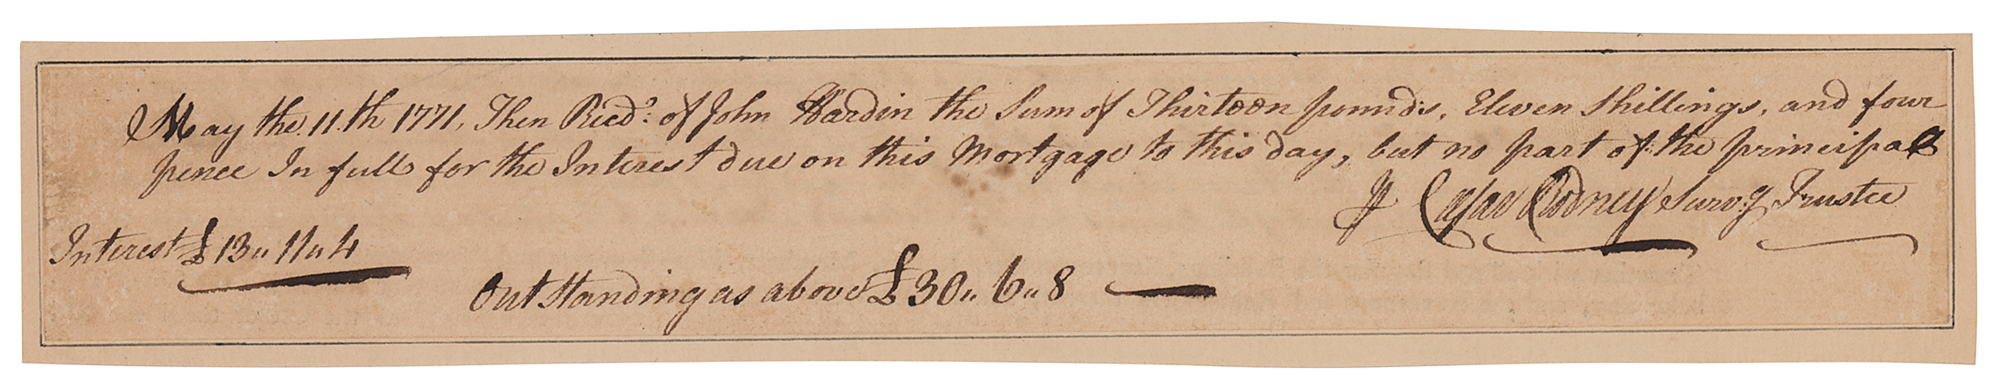 May the 11th 1771, Then Recd. of John Hardin the Sum of Thirteen pounds, Eleven Shillings, and four
pence In full for the Interest due on this Mortgage to this day, but no part of the principal
Cesar Rodney Surv.g Trustee
Interest £13,, 11,, 4
Outstanding as above £30,, 6,, 8